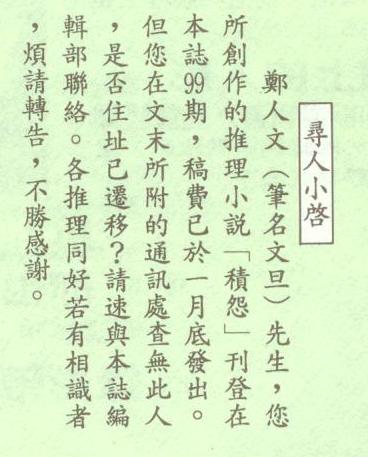 尋人小啓
鄭人文（筆名文旦）先生，您
所創作的推理小說「積怨」刊登在
本誌99期，稿費已於一月底發出。
但您在文末所附的通訊處查無此人
，是否住址已遷移？請速與本誌編
輯部聯絡。各推理同好若有相識者
，煩請轉告，不勝感謝。